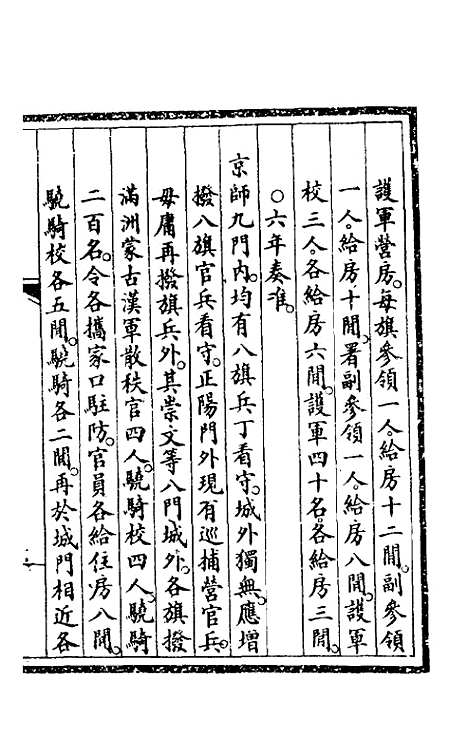 護軍營房。每旗參領一人。給房十二閒。副參領
一人。給房十閒。署副參領一人。給房八閒。護軍
校三人。各給房六閒。護軍四十名。各給房三閒。
○六年奏准。
京師九門內。均有八旗兵丁看守。城外獨無。應增
撥八旗官兵看守。正陽門外現有巡捕營官兵。
毋庸再撥旗兵外。其崇文等八門城外。各旗撥
滿洲蒙古漢軍散秩官四人。驍騎校四人。驍騎
二百名。令各攜家口駐防。官員各給住房八閒。
驍騎校各五閒。驍騎各二閒。再於城門相近各